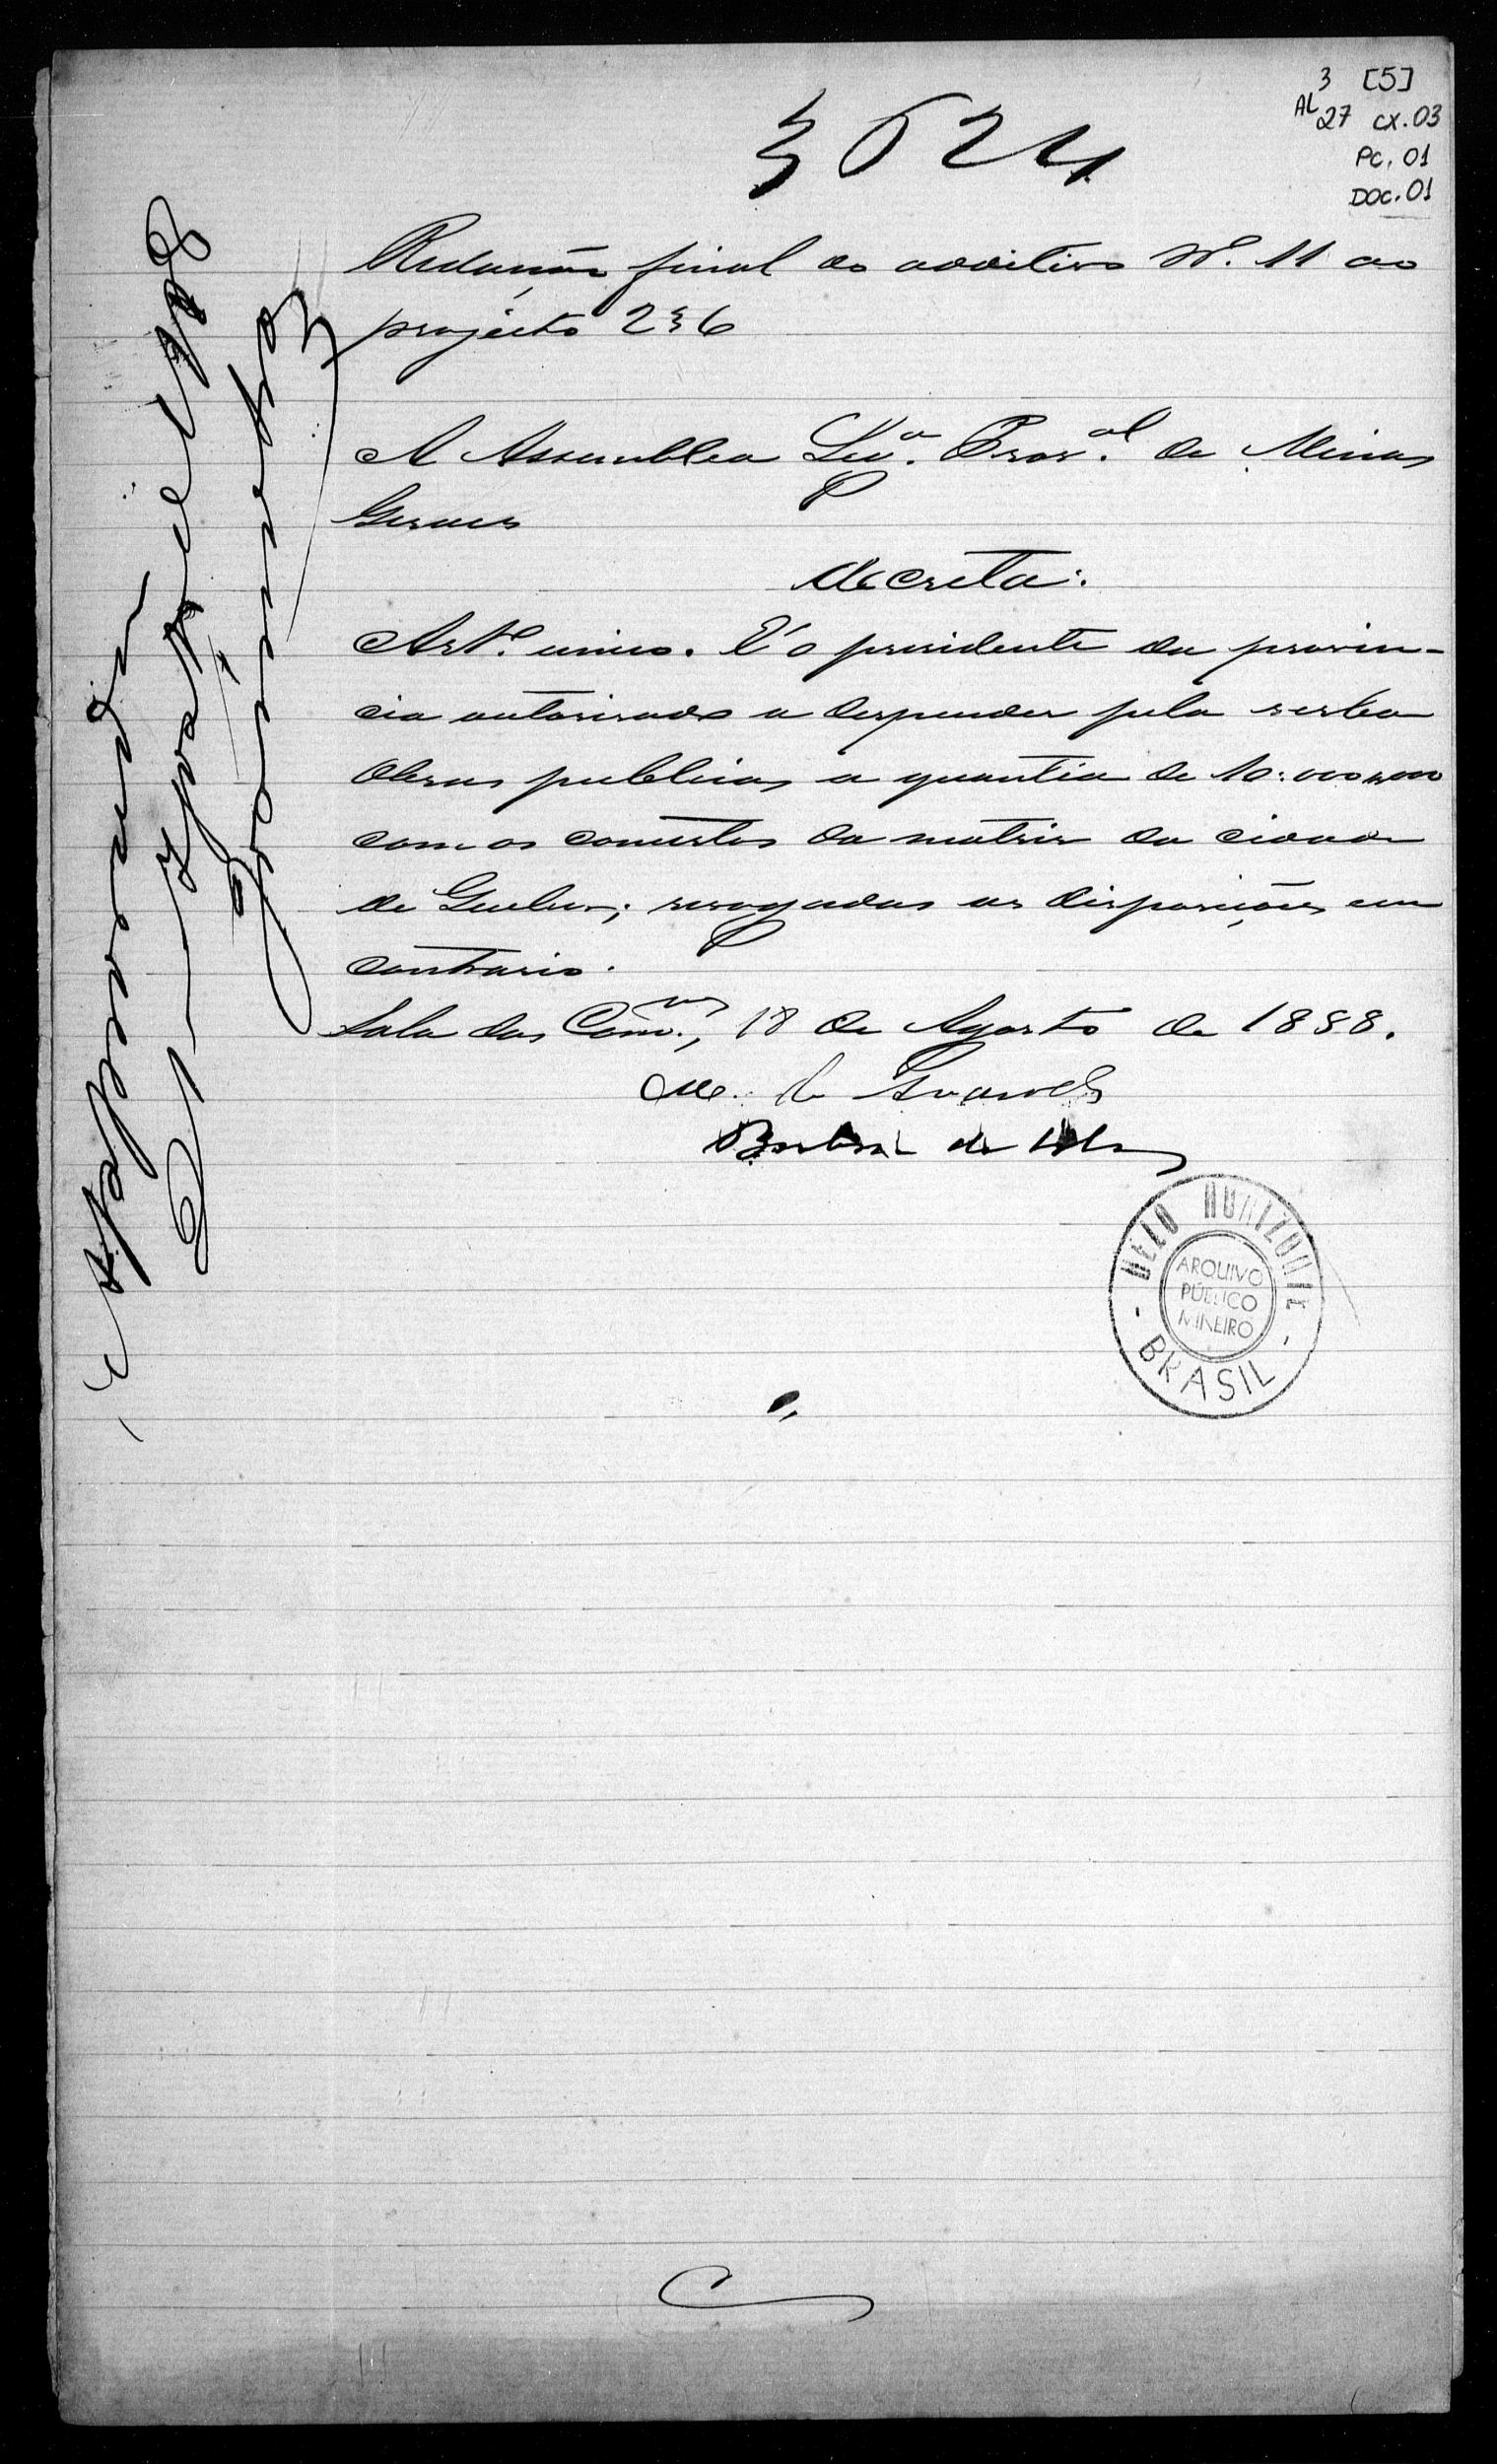 3 [5]
AL 27 CX.03
PC. 01
DOC. 01
3524
Redacção final do additivo Nº. 11 ao
projecto 236
A Assemblea Leg.ª Prov.al de Minas
Geraes
decreta:
Artº. unico. É o presidente da provin-
cia autorisado a despender pela verba
Obras publicas a quantia de 10:000$000
com os concertos da matriz da cidade
de ; revogadas as disposições em
contrario.
Sala das Comm.ões, 18 de Agosto de 1888.
Approvado
Agosto 1888
BELLO HORIZONTE
ARQUIVO
PÚBLICO
MINEIRO
- BRASIL -